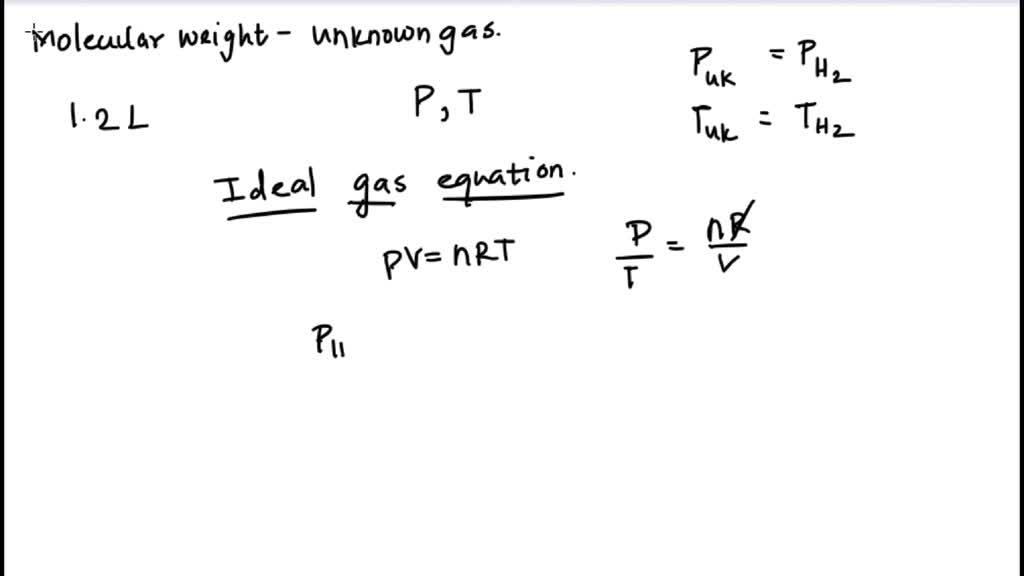 Molecular weight - unknown gas.
P_uk = P_H2
1.2 L
P, T
T_uk = T_H2
Ideal gas equation.
PV = nRT
P/T = nR/V
P_11